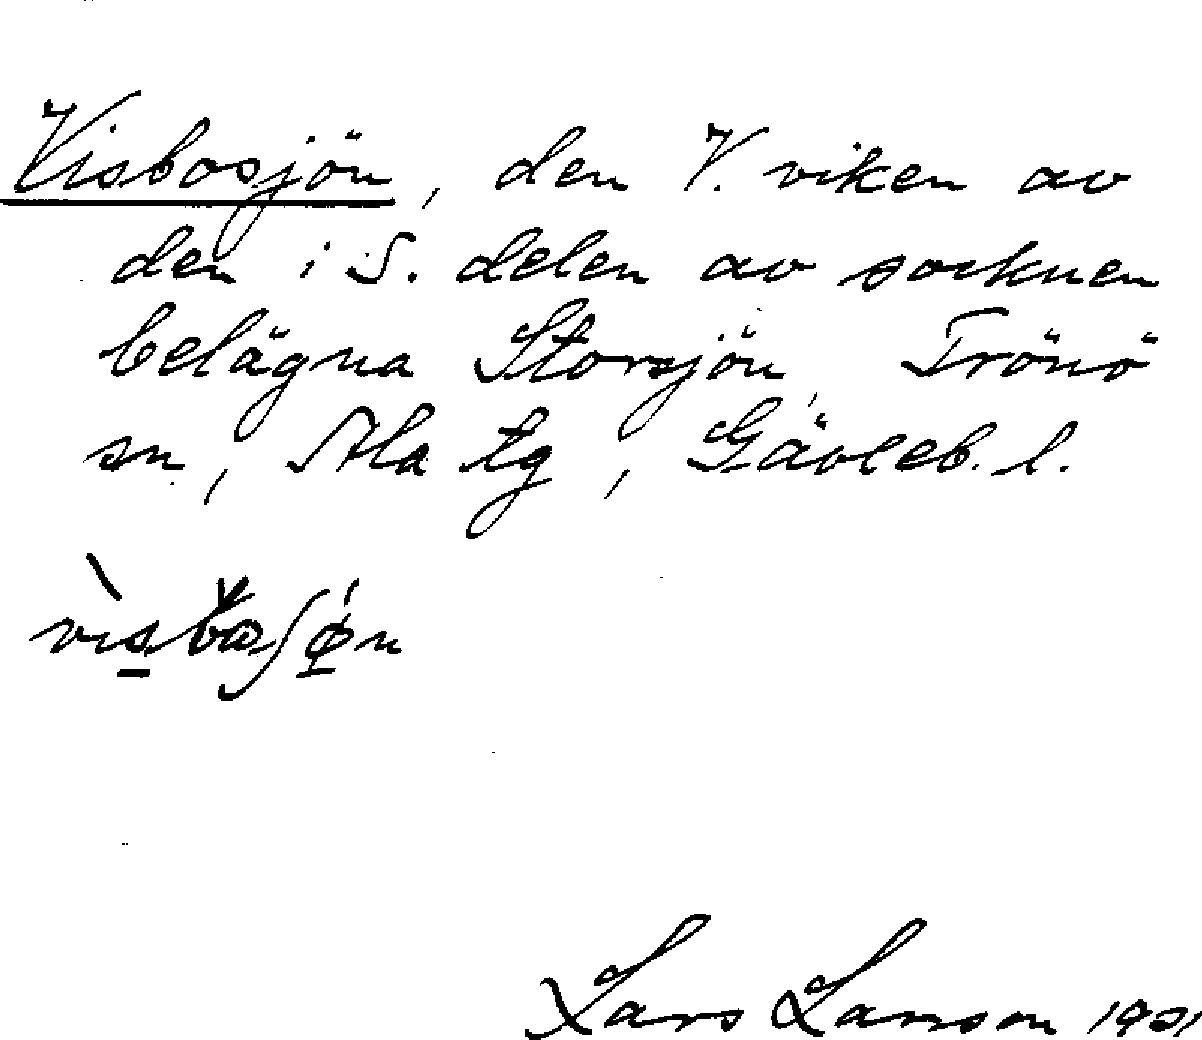 Visbosjön, den V. viken av
den i S. delen av socknen
belägna Storsjön, Trönö
sn, Ala tg, Gävleb. l.
Lars Larsson